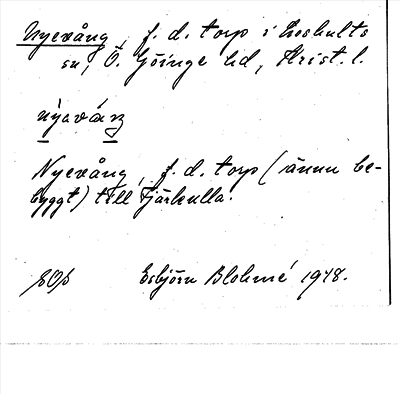 Nyevång, f. d. torp i Loshults
sn, Ö. Göinge hd, Krist. l.
nyavåŋ
Nyevång, f. d. torp (ännu be-
byggt) till Fjärkulla.
Esbjörn Blohmé 1948.